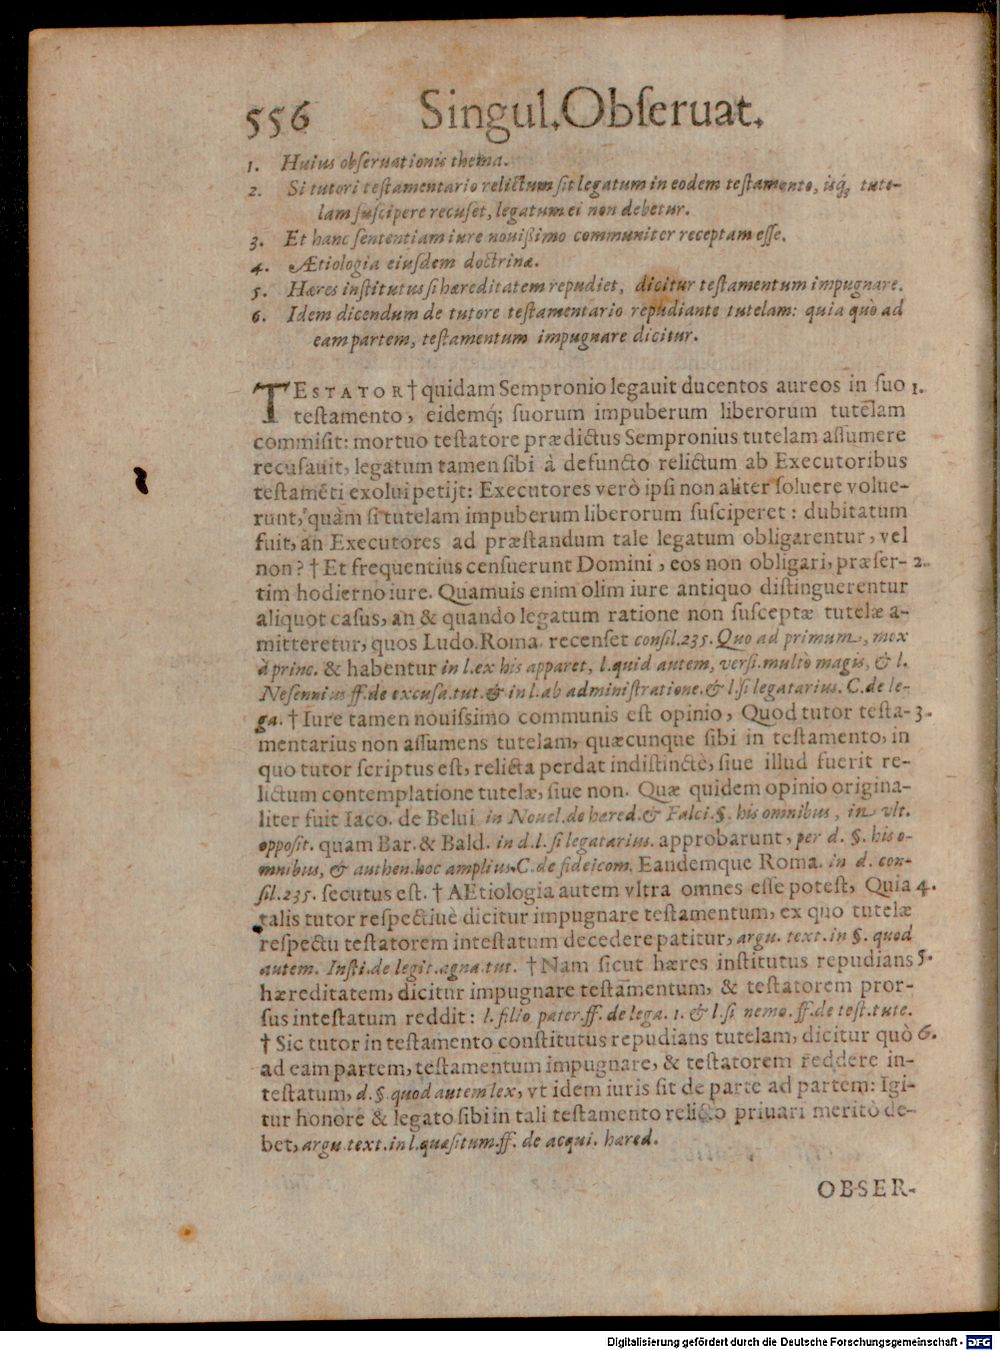 556 Singul. Obseruat.
1. Huius obseruationis thema.
2. Si tutori testamentario relictum sit legatum in eodem testamento, isq; tute-
lam suscipere recuset, legatum ei non debetur.
3. Et hanc sententiam iure nouißimo communiter receptam esse.
4. Ætiologia eiusdem doctrinæ.
5. Hæres institutus si hæreditatem repudiet, dicitur testamentum impugnare.
6. Idem dicendum de tutore testamentario repudiante tutelam: quia quò ad
eam partem, testamentum impugnare dicitur.
TESTATOR † quidam Sempronio legauit ducentos aureos in suo 1.
testamento, eidemq; suorum impuberum liberorum tutelam
commisit: mortuo testatore prædictus Sempronius tutelam assumere
recusauit, legatum tamen sibi à defuncto relictum ab Executoribus
testamēti exolui petijt: Executores verò ipsi non aliter soluere volue-
runt, quàm si tutelam impuberum liberorum susciperet: dubitatum
fuit, an Executores ad præstandum tale legatum obligarentur, vel
non? † Et frequentius censuerunt Domini, eos non obligari, præser- 2.
tim hodierno iure. Quamuis enim olim iure antiquo distinguerentur
aliquot casus, an & quando legatum ratione non susceptæ tutelæ a-
mitteretur, quos Ludo. Roma. recenset consil. 235. Quo ad primum, mox
à princ. & habentur in l. ex his apparet, l. quid autem, versi. multò magis, & l.
Nesennius ff. de excusa. tut. & in l. ab administratione. & l. si legatarius. C. de le-
ga. † Iure tamen nouissimo communis est opinio, Quod tutor testa- 3.
mentarius non assumens tutelam, quæcunque sibi in testamento, in
quo tutor scriptus est, relicta perdat indistinctè, siue illud fuerit re-
lictum contemplatione tutelæ, siue non. Quæ quidem opinio origina-
liter fuit Iaco. de Belui. in Nouel. de hæred. & Falci. §. his omnibus, in vlt.
opposit. quam Bar. & Bald. in d. l. si legatarius. approbarunt, per d. §. his o-
mnibus, & authen. hoc amplius. C. de fideicom. Eandemque Roma. in d. con-
sil. 235. secutus est. † AEtiologia autem vltra omnes esse potest, Quia 4.
talis tutor respectiuè dicitur impugnare testamentum, ex quo tutelæ
respectu testatorem intestatum decedere patitur, argu. text. in §. quod
autem. Insti. de legit. agna. tut. † Nam sicut hæres institutus repudians 5.
hæreditatem, dicitur impugnare testamentum, & testatorem pror-
sus intestatum reddit: l. filio pater. ff. de lega. 1. & l. si nemo. ff. de test. tute.
† Sic tutor in testamento constitutus repudians tutelam, dicitur quò 6.
ad eam partem, testamentum impugnare, & testatorem reddere in-
testatum, d. §. quod autem lex, vt idem iuris sit de parte ad partem: Igi-
tur honore & legato sibi in tali testamento relicto priuari meritò de-
bet, argu. text. in l. quæsitum. ff. de acqui. hæred.
OBSER-
Digitalisierung gefördert durch die Deutsche Forschungsgemeinschaft - DFG